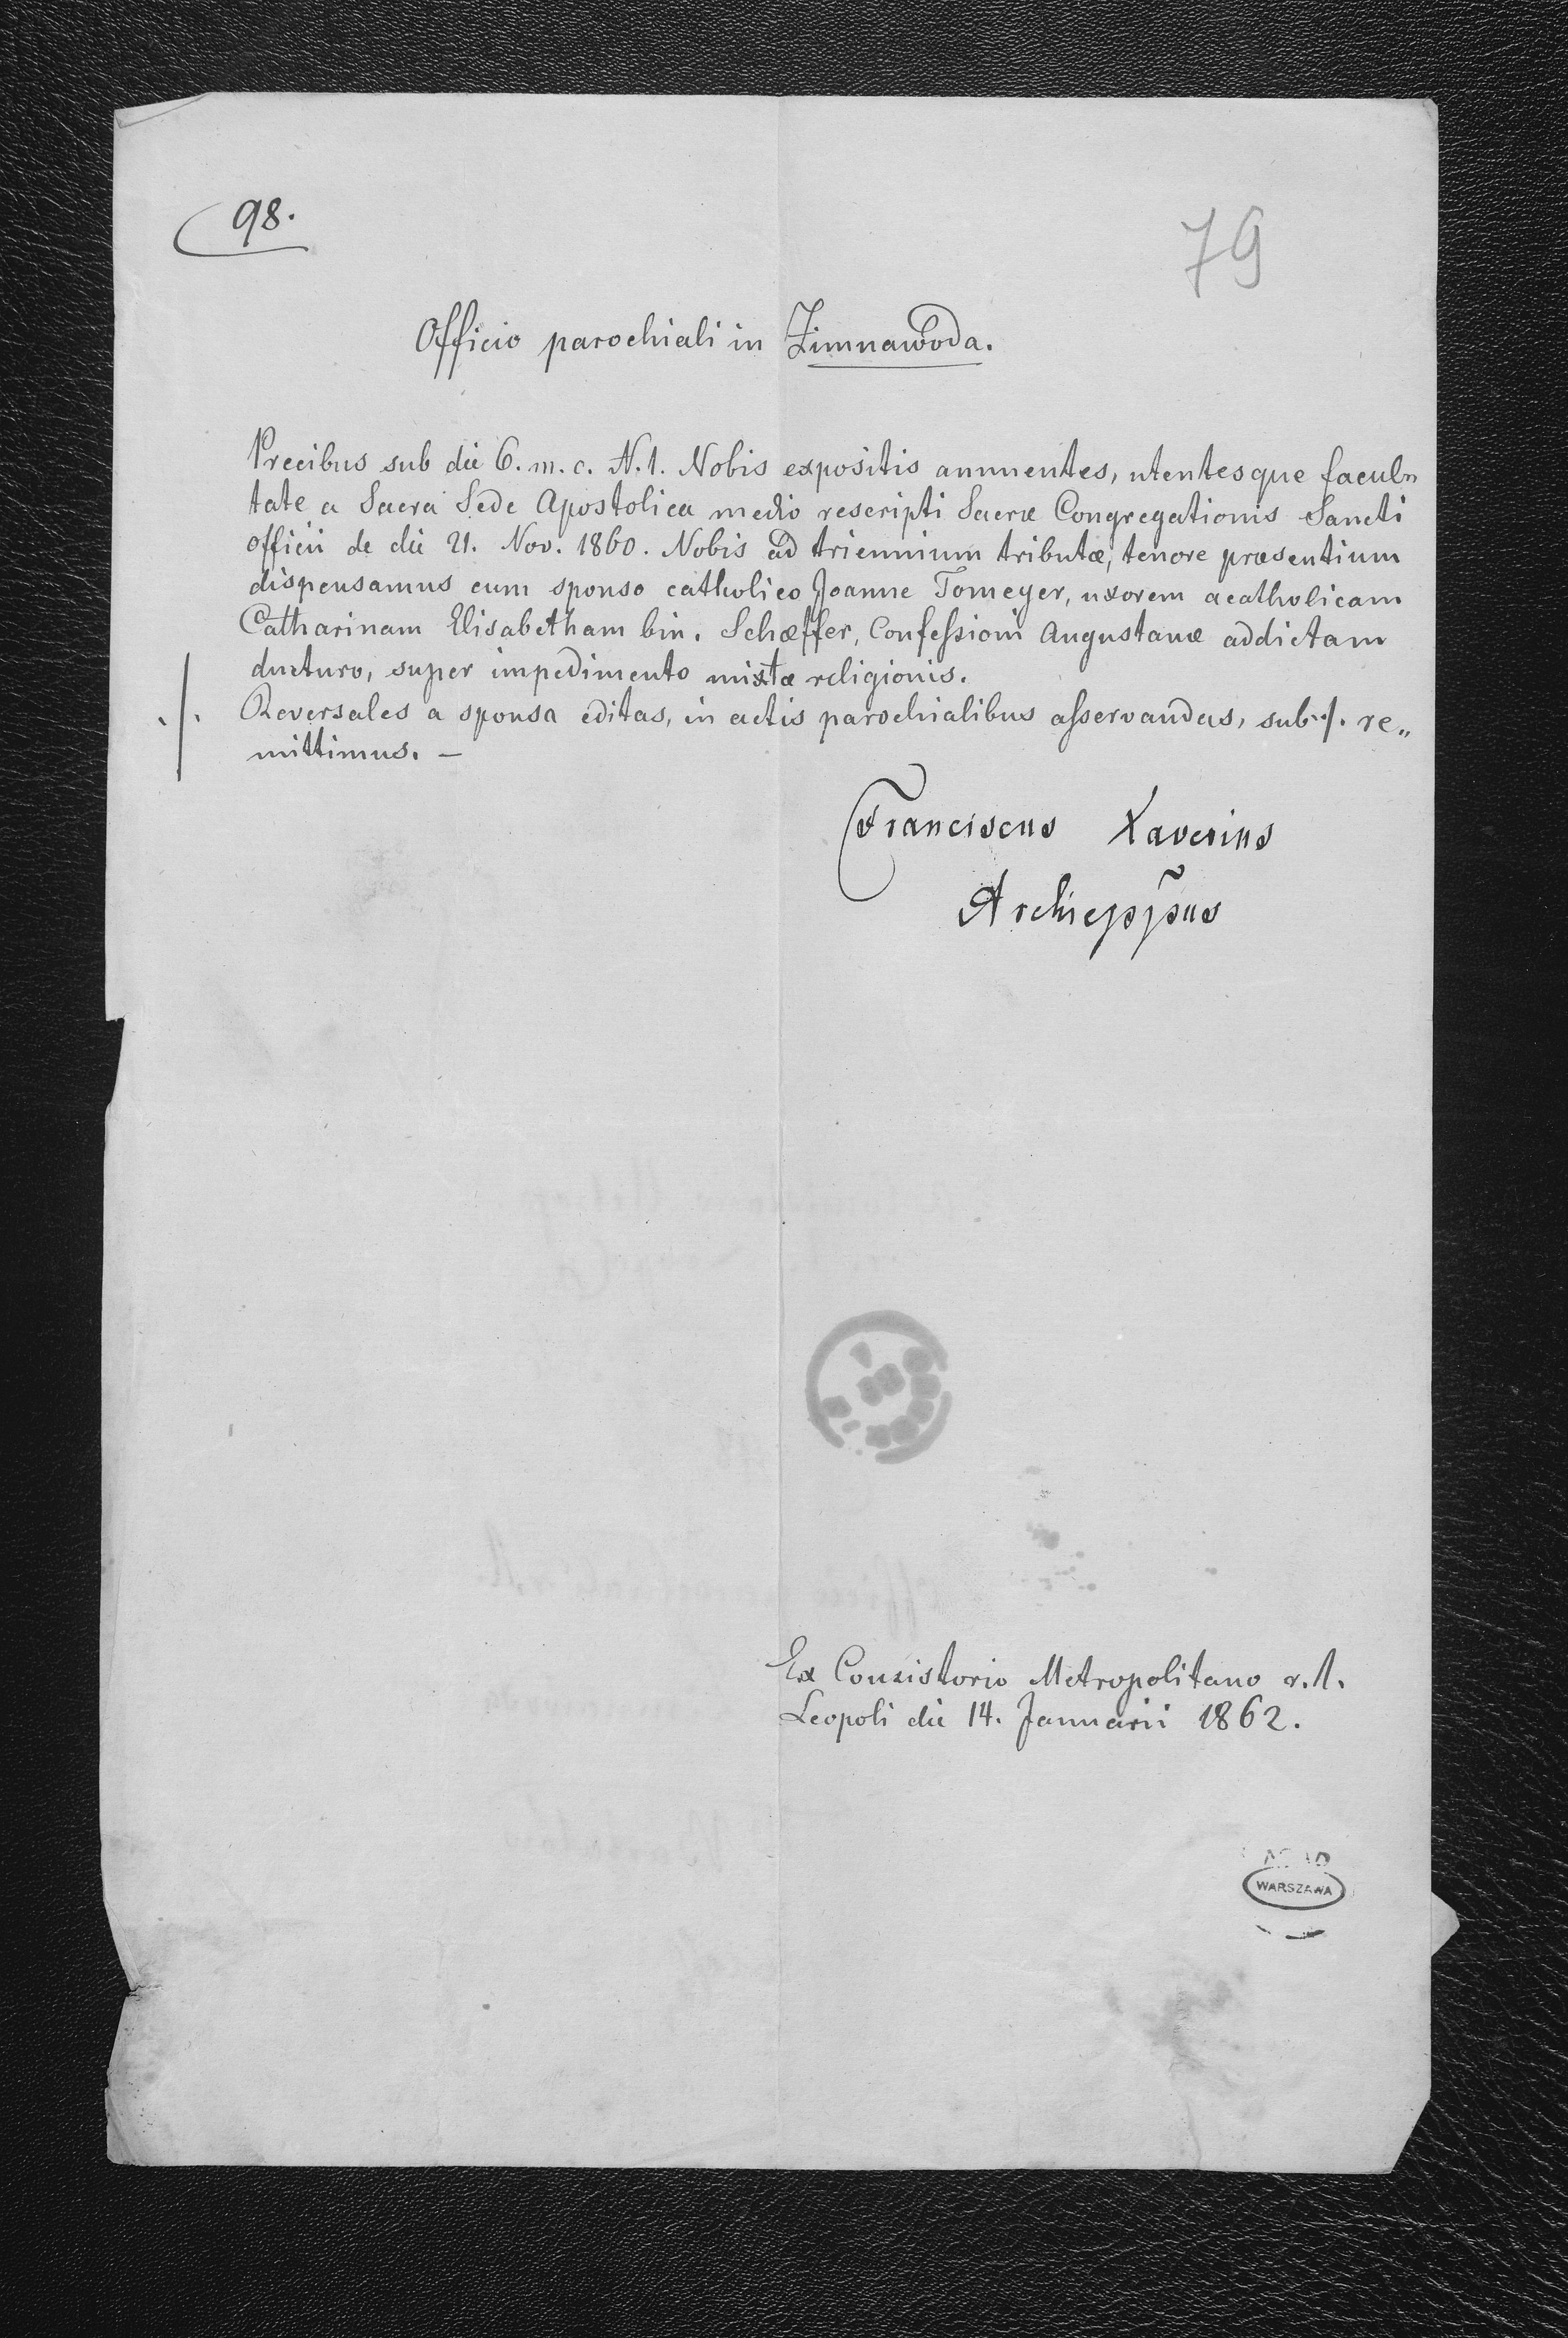 98.
79
Officio parochiali in Zimnawoda.
Precibus sub die 6. m. c. N. 1. Nobis expositis annuentes, utentesque facul„
tate a Sacra Sede Apostolica medio rescripti Sacræ Congregationis Sancti
officii de die 21. Nov. 1860. Nobis ad triennium tributæ, tenore præsentium
dispensamus cum sponso catholico Joanne Tomeyer, uxorem acatholicam
Catharinam Elisabetham bin. Schæffer, Confessioni Augustanæ addictam
ducturo, super impedimento mixtæ religionis.
./. Reversales a sponsa editas, in actis parochialibus asservandas, sub ./. re„
mittimus. –
Franciscus Xaverius
Archieppus
Ex Consistorio Metropolitano r. l.
Leopoli die 14. Januarii 1862.
WARSZAWA